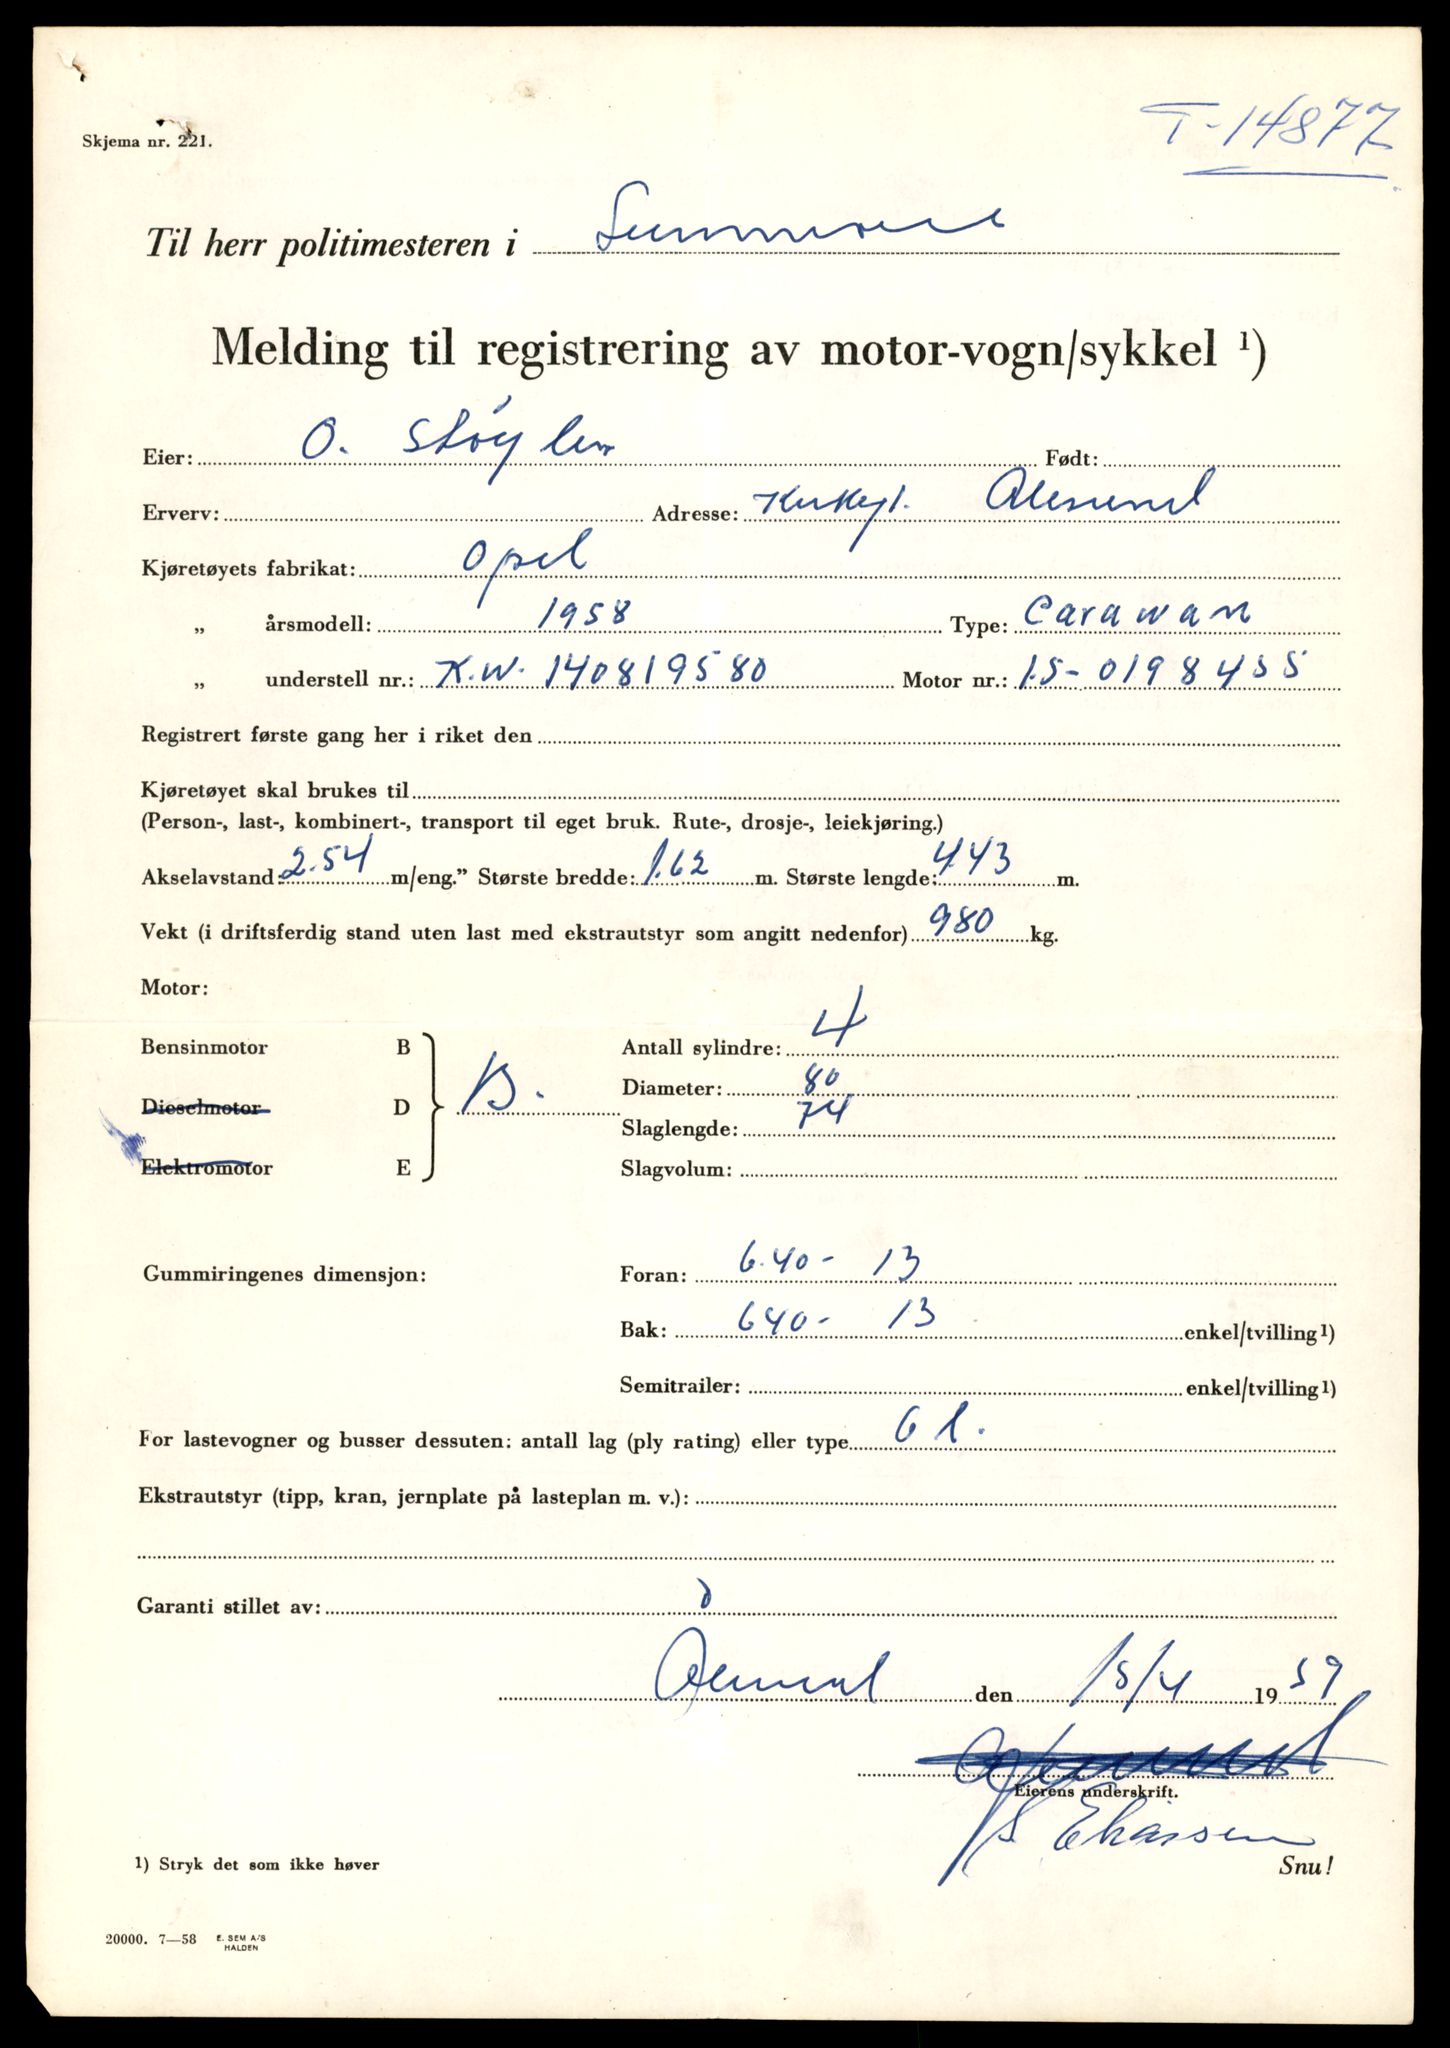 T-14877
Skjema nr. 221.
Til herr politimesteren i Sunnmøre
Melding til registrering av motor-vogn/sykkel ¹)
Eier: O. Støylen Født:
Erverv: Adresse: Kirkegt. Ålesund
Kjøretøyets fabrikat: Opel
„ årsmodell: 1958 Type: Carawan
„ understell nr.: K.W. 140819580 Motor nr.: 1.5-0198455
Registrert første gang her i riket den
Kjøretøyet skal brukes til
(Person-, last-, kombinert-, transport til eget bruk. Rute-, drosje-, leiekjøring.)
Akselavstand: 2.54 m/eng.” Største bredde: 1.62 m. Største lengde: 4.43 m.
Vekt (i driftsferdig stand uten last med ekstrautstyr som angitt nedenfor) 980 kg.
Motor:
Bensinmotor B Antall sylindre: 4
Diameter: 80
Dieselmotor D B.
Slaglengde: 74
Elektromotor E Slagvolum:
Gummiringenes dimensjon: Foran: 6.40- 13
Bak: 640- 13 enkel/tvilling¹)
Semitrailer: enkel/tvilling¹)
For lastevogner og busser dessuten: antall lag (ply rating) eller type 6 l.
Ekstrautstyr (tipp, kran, jernplate på lasteplan m. v.):
Garanti stillet av:
Ålesund den 15/4 1959
Eierens underskrift.
S. Eliassen
¹) Stryk det som ikke høver
Snu!
20000. 7—58 E. SEM A/S
HALDEN